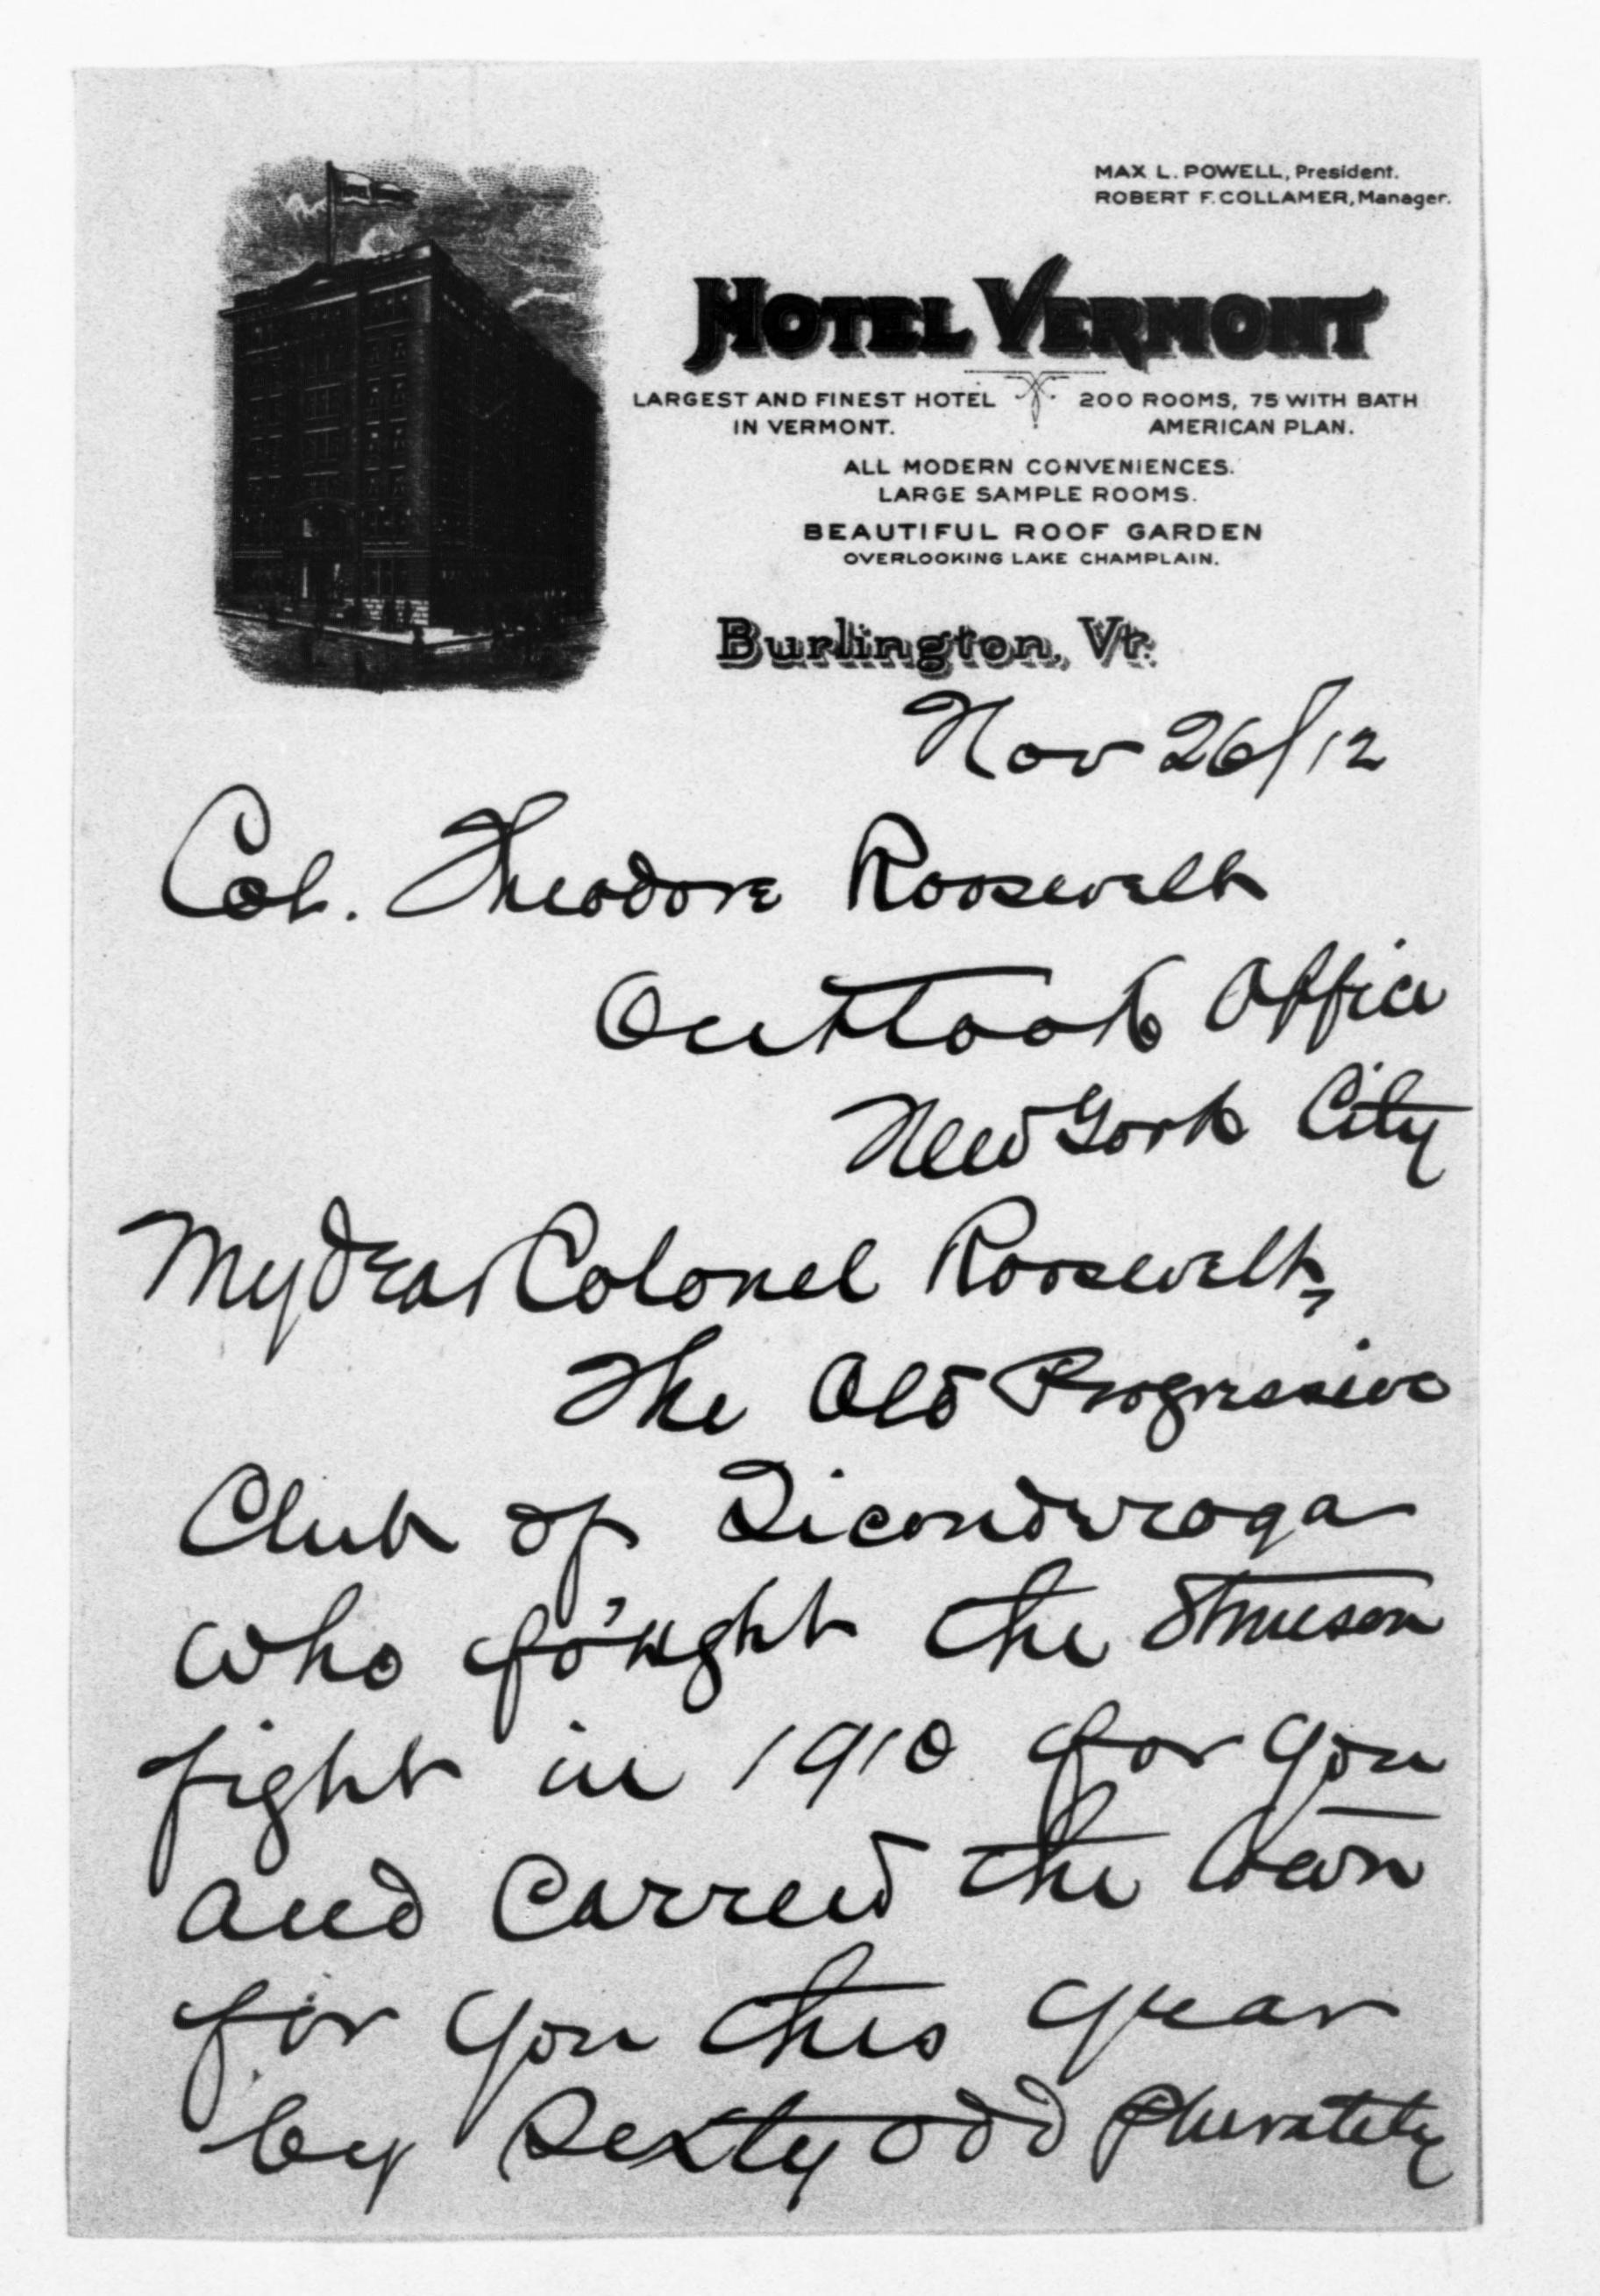 MAX L. POWELL, President.
ROBERT F. COLLAMER, Manager.
HOTEL VERMONT
LARGEST AND FINEST HOTEL
IN VERMONT.
200 ROOMS, 75 WITH BATH
AMERICAN PLAN.
ALL MODERN CONVENIENCES.
LARGE SAMPLE ROOMS.
BEAUTIFUL ROOF GARDEN
OVERLOOKING LAKE CHAMPLAIN.
Burlington, Vt.
Nov 26/12
Col. Theodore Roosevelt
Outlook Office
New York City
My dear Colonel Roosevelt,
The Old Progressive
Club of Ticonderoga
who fought the Stimson
fight in 1910 for you
and carried the town
for you this year
by sixty odd plurality